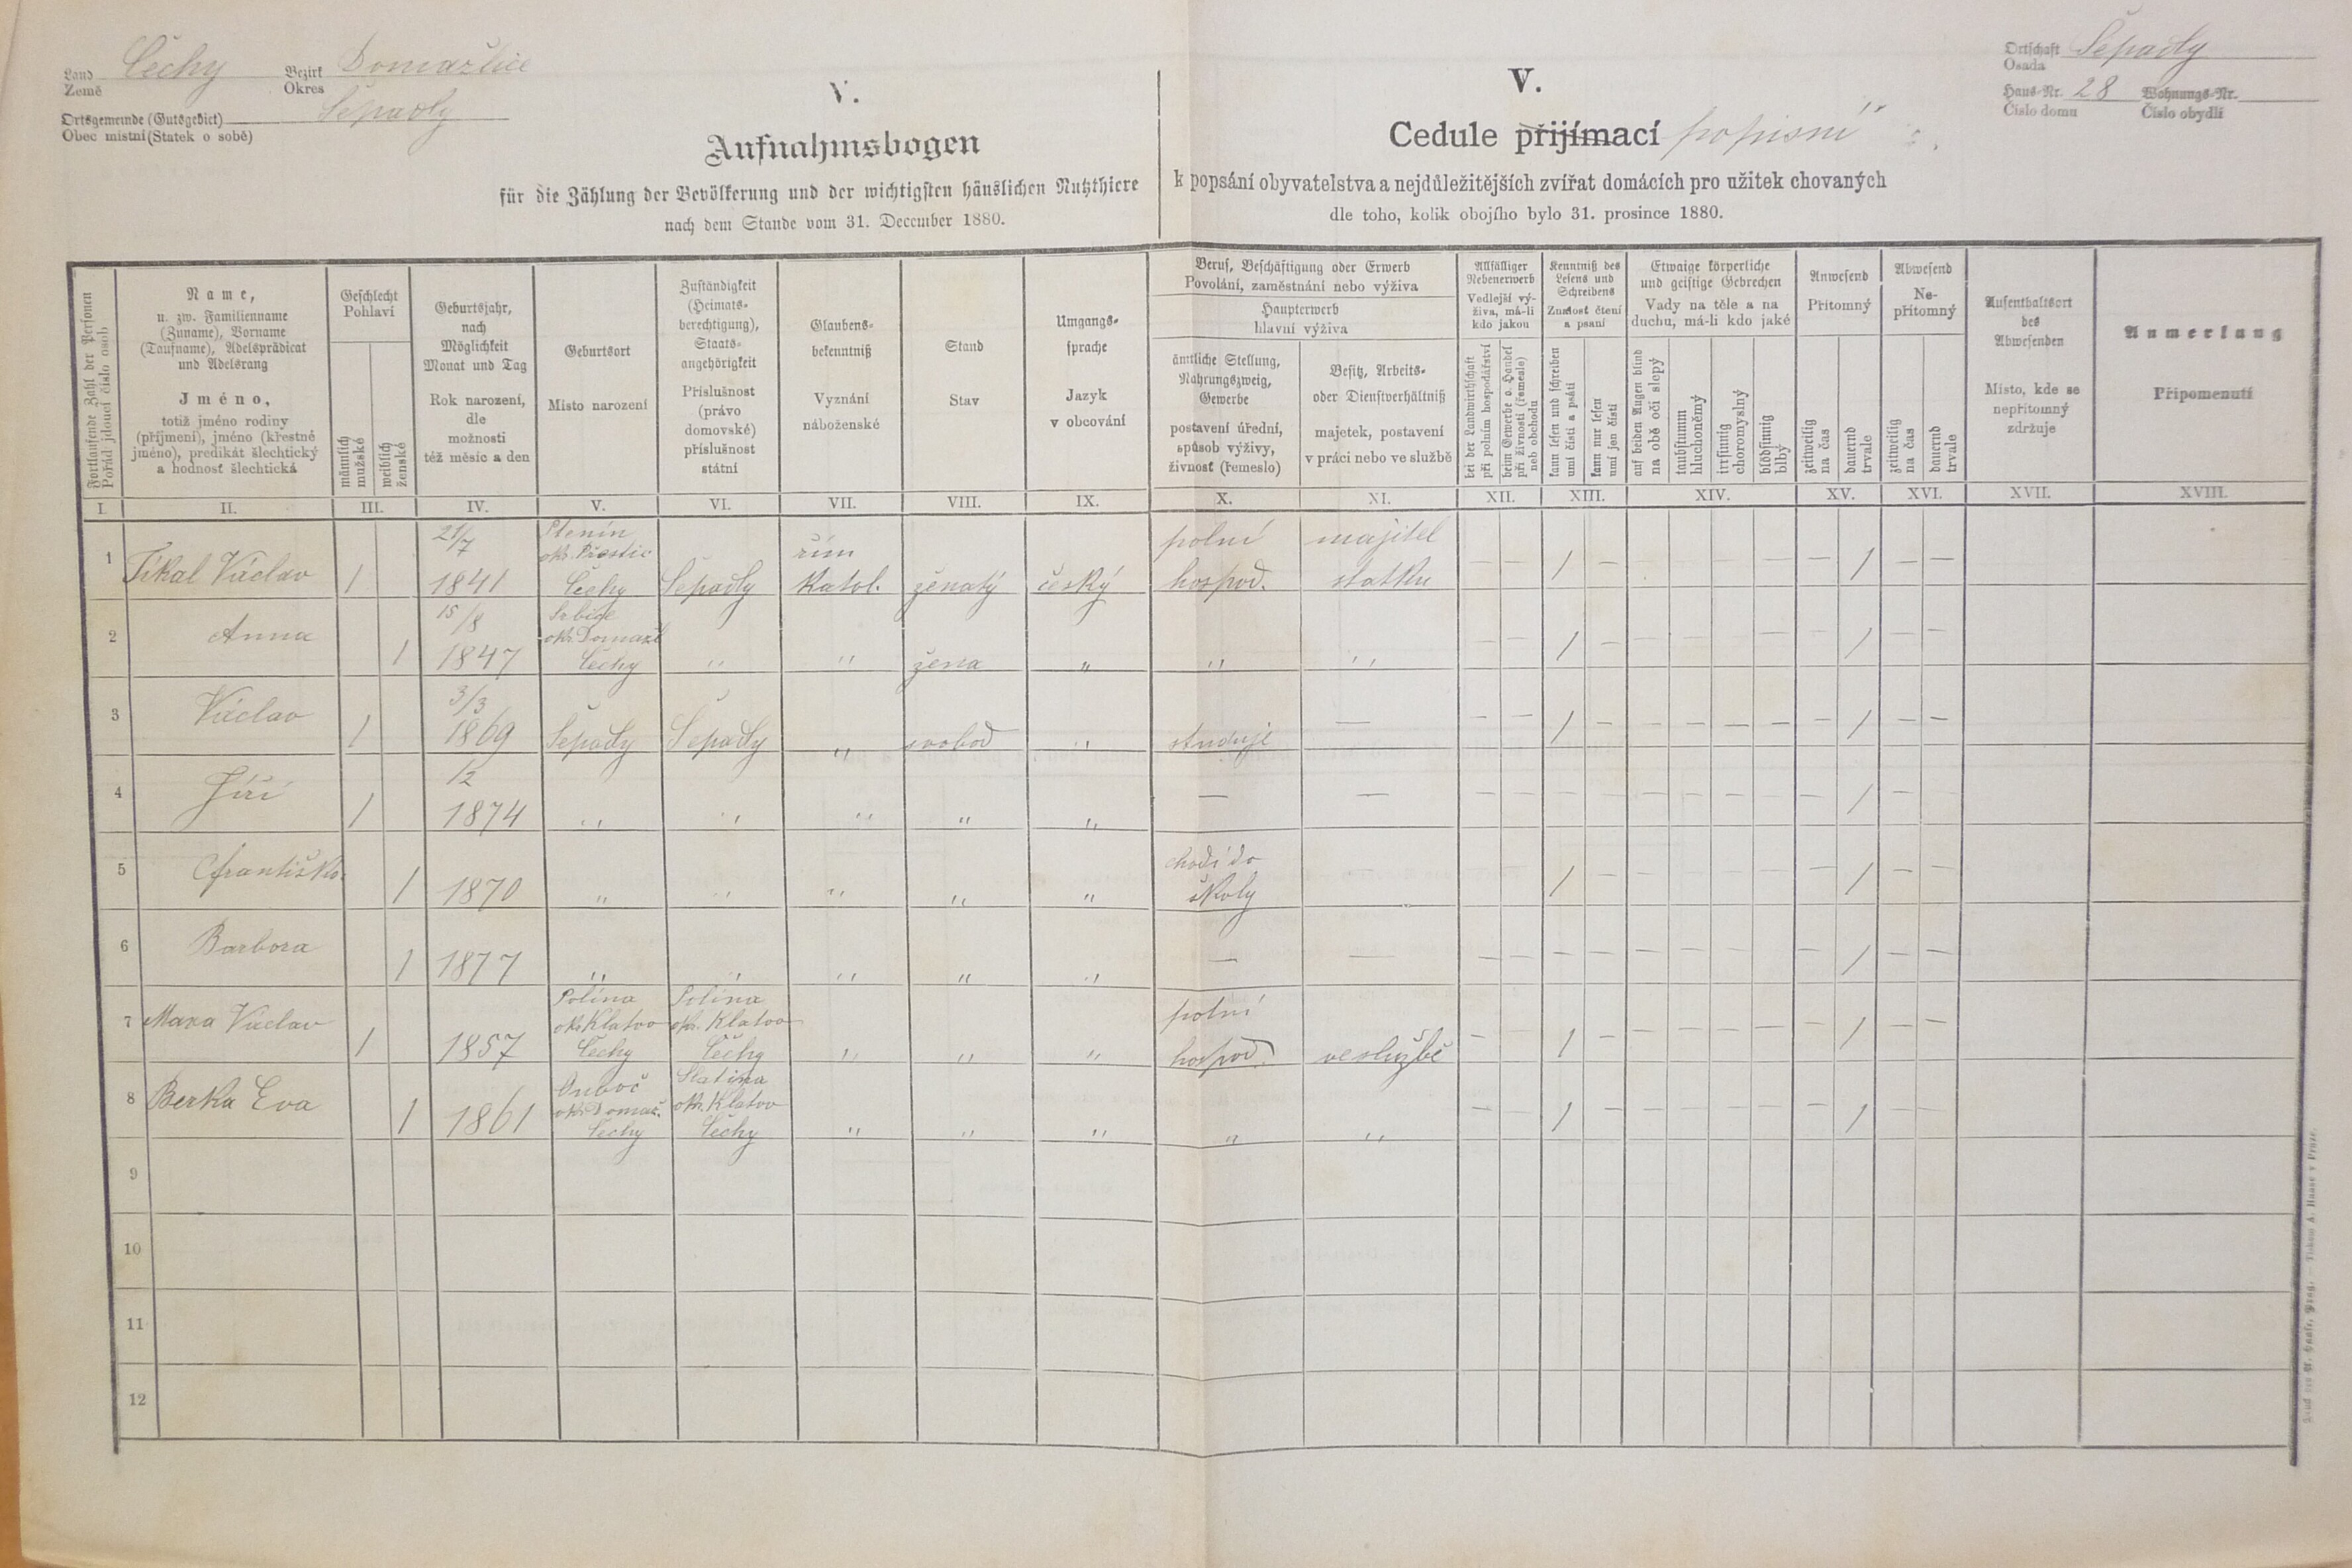 Land Čechy Bezirk Domažlice
Země Okres
Ortsgemeinde (Gutsgebiet) Šepadly
Obec místní (Statek o sobě)
Ortschaft Šepadly
Osada
Haus-Nr. 28 Wohnungs-Nr.
Číslo domu Číslo obydlí
V.
Aufnahmsbogen
für die Zählung der Bevölkerung und der wichtigsten häuslichen Nutzthiere
nach dem Stande vom 31. December 1880.
V.
Cedule přijímací popisní
k popsání obyvatelstva a nejdůležitějších zvířat domácích pro užitek chovaných
dle toho, kolik obojího bylo 31. prosince 1880.
Fortlaufende Zahl der Personen
Pořád jdoucí číslo osob
Name,
u. zw. Familienname
(Zuname), Vorname
(Taufname), Adelsprädicat
und Adelsrang
Jméno,
totiž jméno rodiny
(příjmení), jméno (křestné
jméno), predikát šlechtický
a hodnost šlechtická
Geschlecht
Pohlaví
männlich
mužské
weiblich
ženské
Geburtsjahr,
nach
Möglichkeit
Monat und Tag
Rok narození,
dle
možnosti
též měsíc a den
Geburtsort
Místo narození
Zuständigkeit
(Heimats-
berechtigung),
Staats-
angehörigkeit
Příslušnost
(právo
domovské)
příslušnost
státní
Glaubens-
bekenntniß
Vyznání
náboženské
Stand
Stav
Umgangs-
sprache
Jazyk
v obcování
Beruf, Beschäftigung oder Erwerb
Povolání, zaměstnání nebo výživa
Haupterwerb
hlavní výživa
ämtliche Stellung,
Nahrungszweig,
Gewerbe
postavení úřední,
spůsob výživy,
živnosť (řemeslo)
Besitz, Arbeits-
oder Dienstverhältniß
majetek, postavení
v práci nebo ve službě
Allfälliger
Nebenerwerb
Vedlejší vý-
živa, má-li
kdo jakou
bei der Landwirthschaft
při polním hospodářství
beim Gewerbe o. Handel
při živnosti (řemesle)
neb obchodu
Kenntniß des
Lesens und
Schreibens
Známosť čtení
a psaní
kann lesen und schreiben
umí čísti a psáti
kann nur lesen
umí jen čísti
Etwaige körperliche
und geistige Gebrechen
Vady na těle a na
duchu, má-li kdo jaké
auf beiden Augen blind
na obě oči slepý
taubstumm
hluchoněmý
irrsinnig
choromyslný
blödsinnig
blbý
Anwesend
Přítomný
zeitweilig
na čas
dauernd
trvale
Abwesend
Ne-
přítomný
zeitweilig
na čas
dauernd
trvale
Aufenthaltsort
des
Abwesenden
Místo, kde se
nepřítomný
zdržuje
Anmerkung
Připomenutí
I. II. III. IV. V. VI. VII. VIII. IX. X. XI. XII. XIII. XIV. XV. XVI. XVII. XVIII.
21/7 Plenín řím polní majitel
okr. Přestic
1 Tikal Václav 1 1841 Čechy Šepadly katol. ženatý český hospod. statku — — 1 — — — — — — 1 — —
15/8 Srbice
okr. Domažl
2 Anna 1 1847 Čechy " " žena " " " — — 1 — — — — — — 1 — —
3/3
3 Václav 1 1869 Šepadly Šepadly " svobod " studuje — — — 1 — — — — — — 1 — —
/2
4 Jiří 1 1874 " " " " " — — — — — — — — — — — 1 — —
chodí do
5 Františka 1 1870 " " " " " školy 1 — — — — — — 1 — —
6 Barbora 1 1877 " " " " " — — — — — — — — — — — 1 — —
Polína Polína polní
okr Klatov okr. Klatov
7 Maxa Václav 1 1857 Čechy Čechy " " " hospod. ve službě — — 1 — — — — — — 1 — —
Ouboč Slatina
okr Domaž. okr. Klatov
8 Berka Eva 1 1861 Čechy Čechy " " " " " — — 1 — — — — — — 1 — —
9
10
11
12